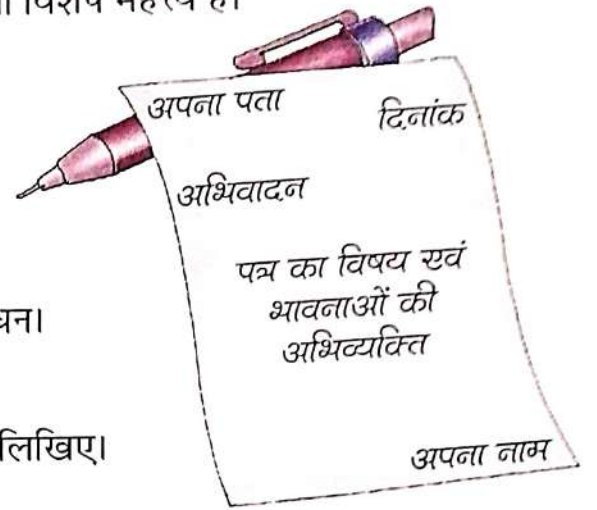 विशेष महत्त्व है।
अपना पता
दिनांक
अभिवादन
पत्र का विषय एवं
भावनाओं की
अभिव्यक्ति
लिखिए।
अपना नाम